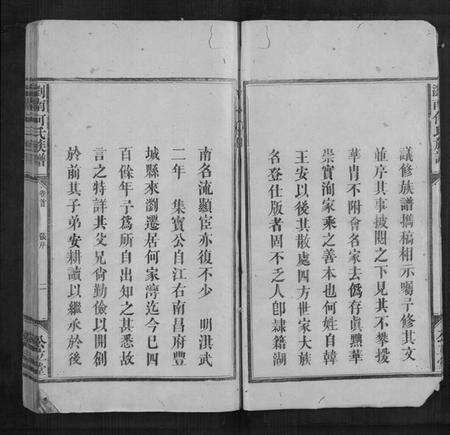 議修族譜攜稿相示囑予修其文
並序其事披閱之下見其不攀援
華胄不附會名家去偽存眞黜華
崇實洵家乘之善本也何姓自韓
王安以後其散處四方世家大族
名登仕版者固不乏人卽隸籍湖
南名流顯宦亦復不少　明洪武
二年　集寶公自江右南昌府豐
城縣來瀏遷居何家灣迄今巳四
百餘年予爲所自出知之甚悉故
言之特詳其父兄尙勤儉以開創
於前其子弟安耕讀以繼承於後
瀏南何氏族譜
卷首